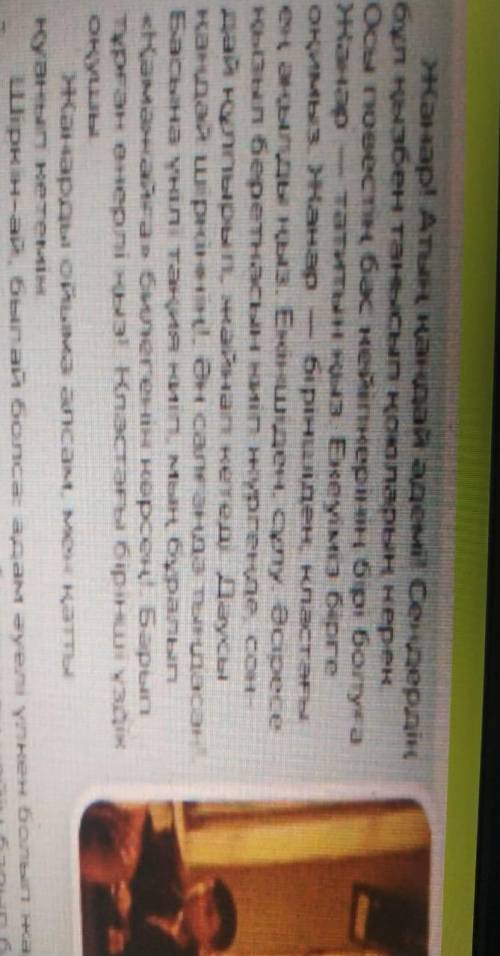 Жанар! Атың қандай әдемі! Сендердің
бұл қызбен танысып қоюларың керек.
Осы повестің бас кейіпкерінің бірі болуға
Жанар — татитын қыз. Екеуіміз бірге
оқимыз. Жанар — біріншіден, кластағы
ең ақылды қыз. Екіншіден, сұлу. Әсіресе
қызыл бөреткасын киіп жүргенде, сон-
дай құлпырып, жайнап кетеді. Даусы
қандай шіркіннің!. Ән салғанда тыңдасаң!.
Басына үкілі тақия киіп, мың бұралып
«Қамажайға» билегенін көрсең!. Барып
тұрған өнерлі қыз!. Кластағы бірінші үздік
оқушы.
Жанарды ойыма алсам, мен қатты
қуанып кетемін.
Шіркін-ай, былай болса: адам әуелі үлкен болып